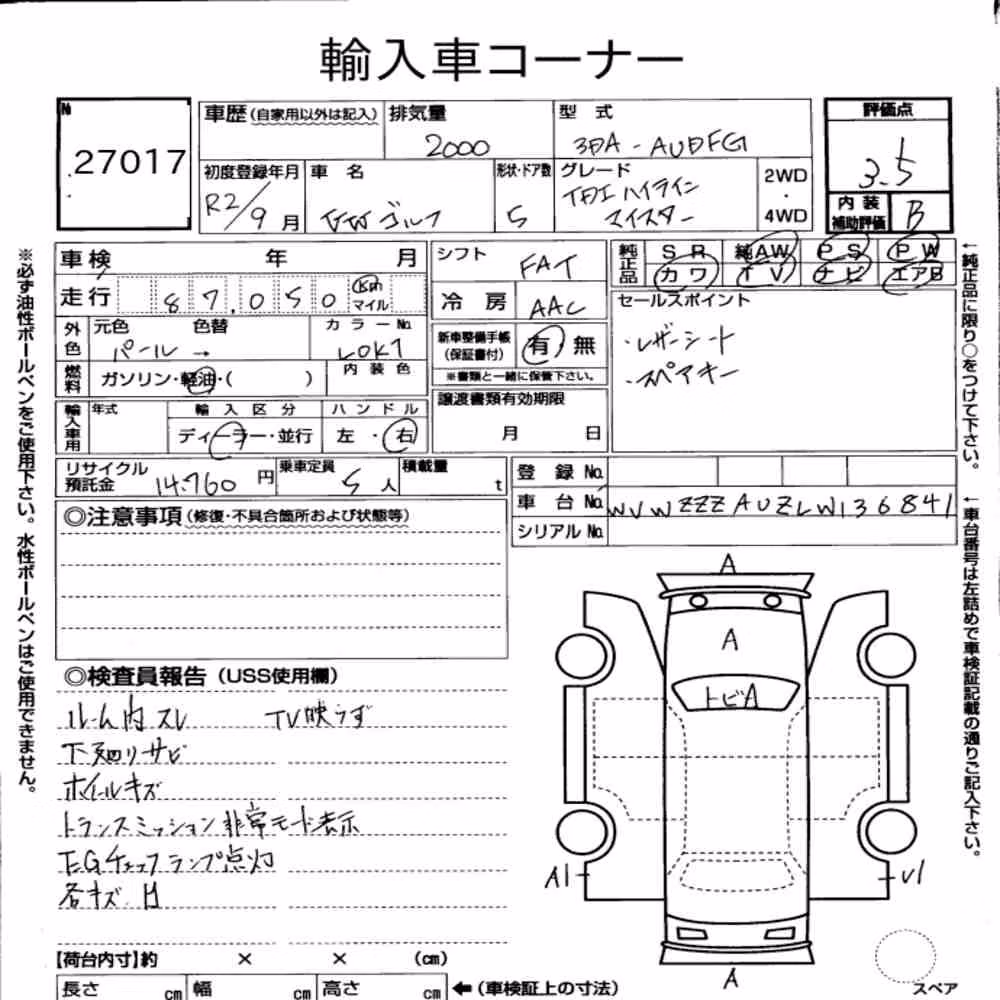 輸入車コーナー
№ 27017
車歴(自家用以外は記入) 排気量 2000
型式 3DA-AUDFG
評価点 3.5
初度登録年月 R2/9月
車名 VWゴルフ
形状・ドア数 5
グレード TDI ハイライン マイスター
2WD・4WD
内装補助評価 B
車検 年 月
シフト FAT
純正品 SR 純AW PS PW
カワ TV ナビ エアB
走行 87,050 Km マイル
冷房 AAC
セールスポイント
・レザーシート
・スペアキー
外色 元色 色替 カラーNo.
パール → LOK1
新車整備手帳(保証書付) 有 無
※書類と一緒に保管下さい。
燃料 ガソリン・軽油・( ) 内装色
譲渡書類有効期限
月 日
輸入車用 年式 輸入区分 ハンドル
ディーラー・並行 左・右
リサイクル預託金 14,760円 乗車定員 5人 積載量 t
登録No.
車台No. WVWZZZAUZLW136841
シリアルNo.
◎注意事項(修復・不具合箇所および状態等)
◎検査員報告(USS使用欄)
ルーム内スレ TV映らず
下廻りサビ
ホイールキズ
トランスミッション非常モード表示
EGチェックランプ点灯
各キズ・凹
A
A
トビA
A1
U1
A
スペア
【荷台内寸】約 × × (cm)
長さ cm 幅 cm 高さ cm ←(車検証上の寸法)
※必ず油性ボールペンをご使用下さい。水性ボールペンはご使用できません。
←純正品に限り○をつけて下さい。
←車台番号は左詰めで車検証記載の通りご記入下さい。